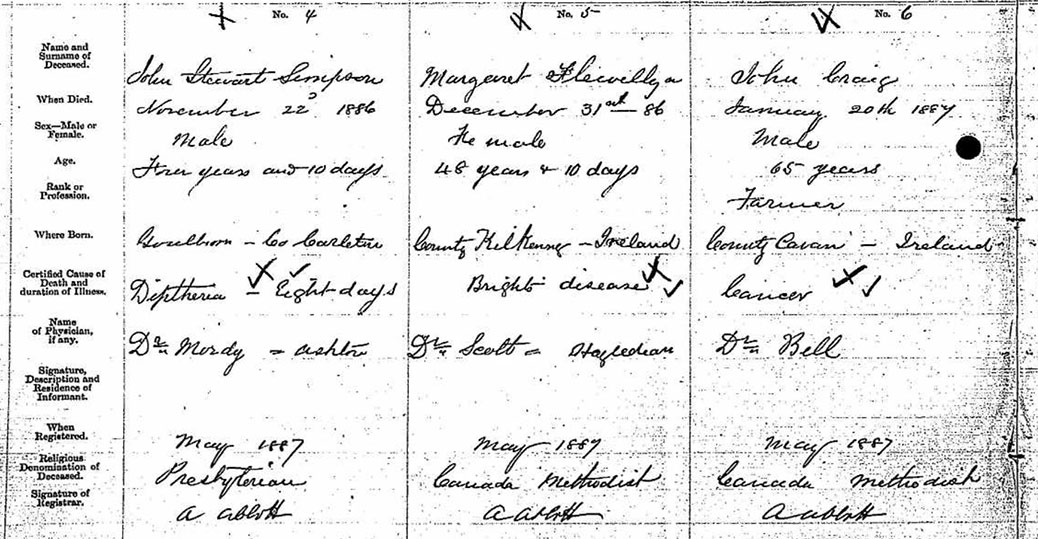 No. 4 No. 5 No. 6
Name and Surname of Deceased. John Stewart Simpson Margaret John Craig
When Died. November 22 1886 December 31st 86 January 20th 1887
Sex—Male or Female. Male Female Male
Age. Four years and 10 days 48 years + 10 days 65 years
Rank or Profession. Farmer
Where Born. Goulborn - Co Carleton County Kilkenny - Ireland County Cavan - Ireland
Certified Cause of Death and duration of Illness. Diptheria - Eight days Bright disease Cancer
Name of Physician, if any. Dr Mordy - Ashton Dr Scott - Dr Bell
Signature, Description and Residence of Informant.
When Registered. May 1887 May 1887 May 1887
Religious Denomination of Deceased. Presbyterian Canada Methodist Canada Methodist
Signature of Registrar. A Abbott A Abbott A Abbott